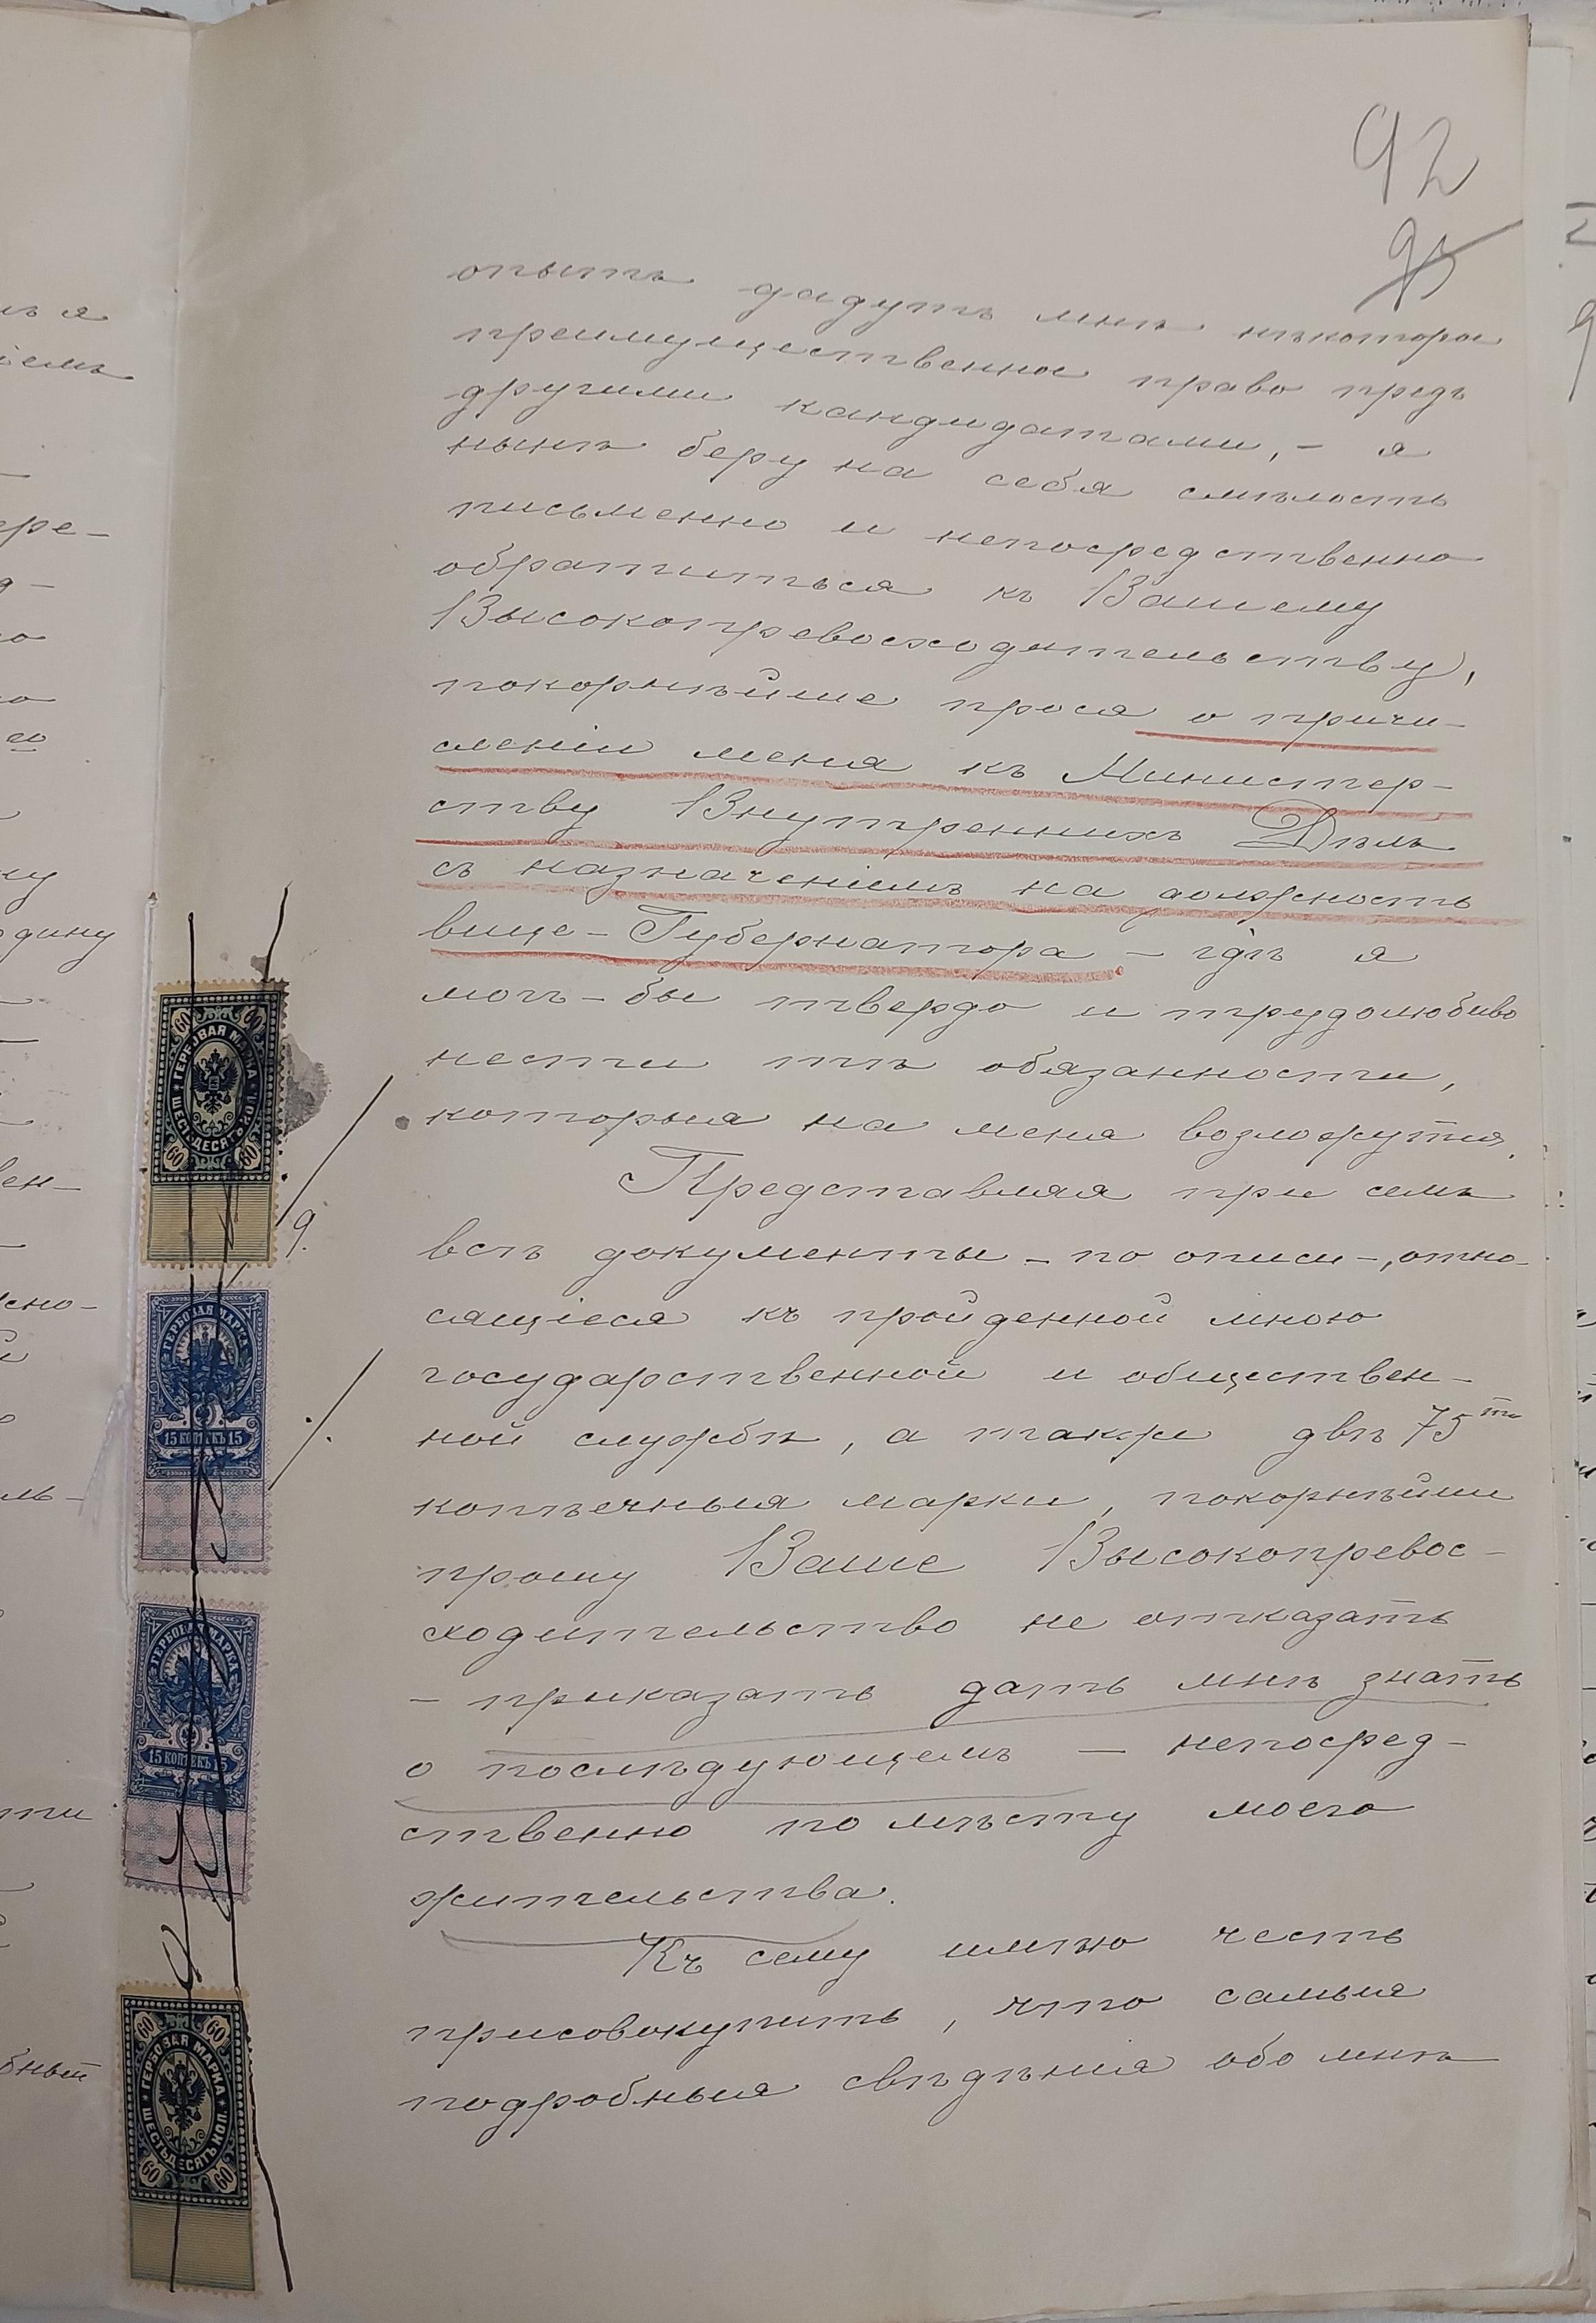 92
93
опытъ дадутъ мнѣ нѣкоторое
преимущественное право предъ
другими кандидатами, – я
нынѣ беру на себя смѣлость
письменно и непосредственно
обратиться къ Вашему
Высокопревосходительству,
покорнѣйше прося о причи-
сленіи меня къ Министер-
ству Внутреннихъ Дѣлъ
съ назначеніемъ на должность
вице-Губернатора – гдѣ я
могъ-бы твердо и трудолюбиво
нести тѣ обязанности,
которыя на меня возложутся.
Представляя при семъ
всѣ документы – по описи –, отно-
сящіеся къ пройденной мною
государственной и обществен-
ной службѣ, а также двѣ 75ти
копѣечныя марки, покорнѣйше
прошу Ваше Высокопревос-
ходительство не отказать
– приказать дать мнѣ знать
о послѣдующемъ – непосред-
ственно по мѣсту моего
жительства.
Къ сему имѣю честь
присовокупить, что самыя
подробныя свѣдѣнія обо мнѣ
ГЕРБОВАЯ МАРКА
ШЕСТЬДЕСЯТЪ КОП.
60 60
60 60
9.
ГЕРБОВАЯ МАРКА
15 КОПѢЕКЪ 15
ГЕРБОВАЯ МАРКА
15 КОПѢЕКЪ 15
60 60
ГЕРБОВАЯ МАРКА
ШЕСТЬДЕСЯТЪ КОП.
60 60